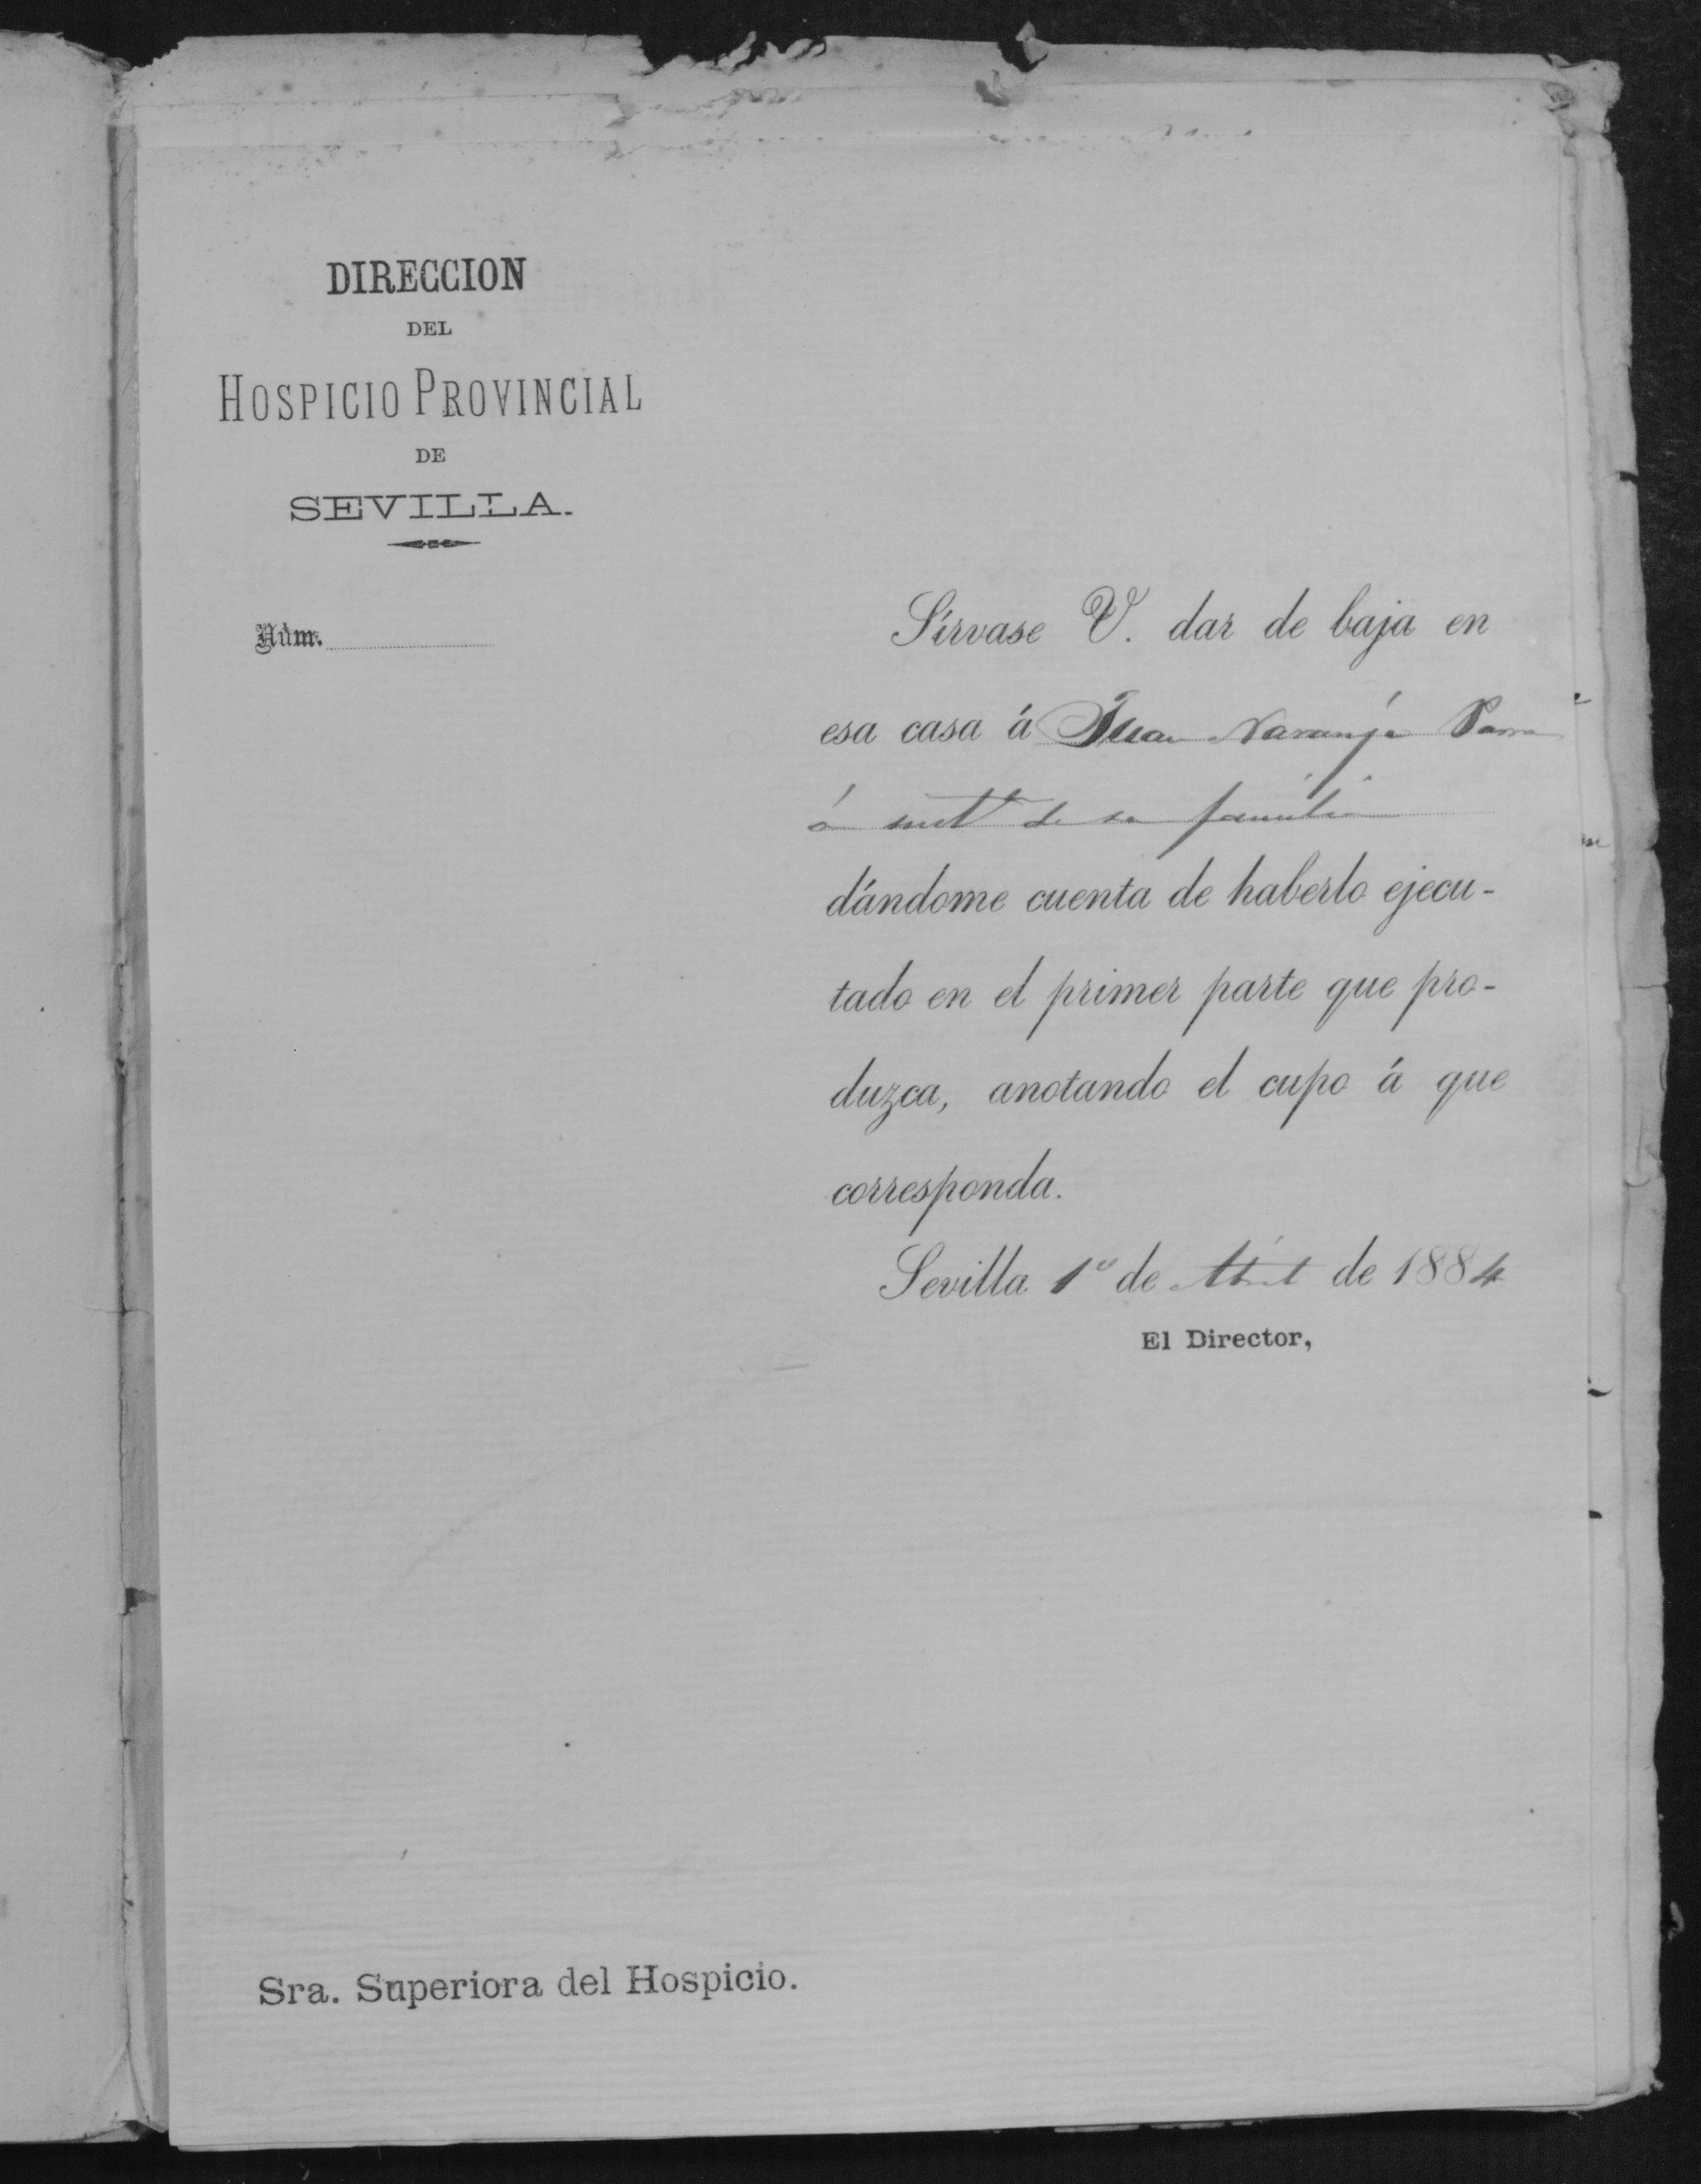 DIRECCION
DEL
HOSPICIO PROVINCIAL
DE
SEVILLA.
Núm.
Sírvase V. dar de baja en
esa casa á Juan Naranjo Parra
á inst.ª de su familia
dándome cuenta de haberlo ejecu-
tado en el primer parte que pro-
duzca, anotando el cupo á que
corresponda.
Sevilla 1º de Abril de 1884
El Director,
Sra. Superiora del Hospicio.